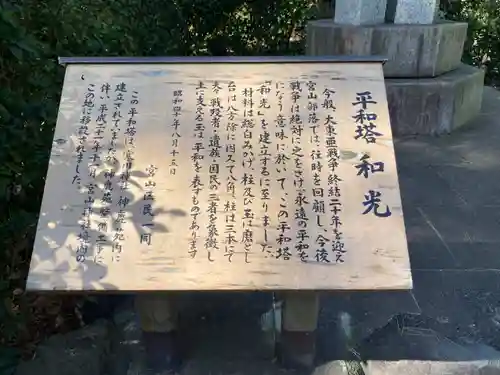 平和塔 和光
今般、大東亜戦争終結二十年を迎え
宮山部落では、往時を回顧し、今後
戦争は絶対にさけ、永遠の平和を
こう意味に於いて、この平和塔
「和光」を建立するに至りました。
材料は総白みかげ、柱及び玉は磨とし
台は八方除に因みて八角、柱は三本にて
夫々戦歿者・遺族・国民の三者を象徴し
上に支える玉は平和を表すものであります
昭和四十年八月十五日
宮山区民一同
この平和塔は、寒川神社の神嶽苑内に
建立されていましたが、神嶽苑整備工事に
伴い平成二十一年十一月 宮山神社境内の
この地に移設されました。